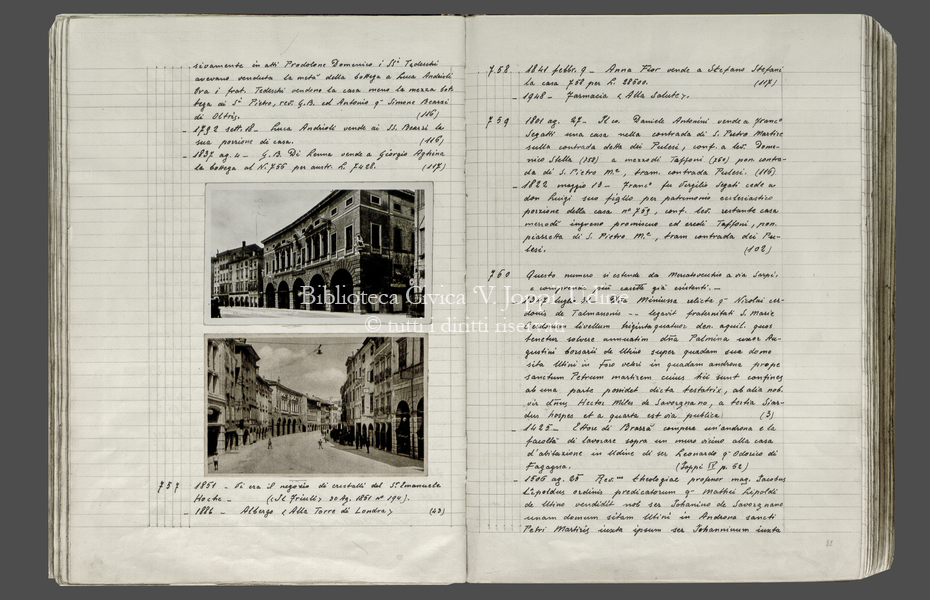 sivamente in atti Prodolone Domenico i Sri Tedeschi
avevano venduta la metà della bottega a Luca Andrioli
Ora i frat. Tedeschi vendono la casa meno la mezza bot-
tega ai Sri Pietro, rev. G.B. ed Antonio q^m Simone Bearzi
di Oltris. (116)
- 1792 sett. 18 - Luca Andrioli vende ai SS. Bearzi la
sua porzione di casa. (116)
- 1837 ag. 4 - G. B. Di Lenna vende a Giorgio Aghina
la bottega al N. 756 per austr. L. 7428. (117)
757 1851 - Vi era il negozio di cristalli del Sr Emanuele
Hoche - (Il Friuli), 30 Ag. 1851 n° 194).
- 1886 - Albergo < Alla Torre di Londra > (43)
758 1841 febbr. 9 - Anna Fior vende a Stefano Stefani
la casa 758 per L. 28500. (117)
- 1948 - Farmacia < Alla Salute >.
759 1801 ag. 27 - Il co. Daniele Antonini vende a Franco
Segatti una casa nella contrada di S. Pietro Martire
sulla contrada detta dei Pulesi, conf. a lev. Dome-
nico Stella (758) a mezzodì Taffoni (760) pon. contra-
da di S. Pietro M.e, tram. contrada Pulesi. (116)
- 1822 maggio 13 - Franco fu Virgilio Segati cede a
don Luigi suo figlio per patrimonio ecclesiastico
porzione della casa n° 759, conf. lev. restante casa
mezzodì ingresso promiscuo ed eredi Taffoni, pon.
piazzetta di S. Pietro M.e, tram contrada dei Pu-
lesi. (102)
760 Questo numero si estende da Mercatovecchio a via Sarpi.
e comprende più casette già esistenti. -
luglio Miniussa relicta q^m Nicolai cer-
donis de Talmassonis -- legavit fraternitati S. Marie
livellum triginta quatuor den. aquil. quos
tenetur solvere annuatim dna Palmina uxor Au-
gustini borsarii de Utino super quadam sua domo
sita Utini in foro veteri in quadam androna prope
sanctum Petrum martirem cuius hii sunt confines
ab una parte possidet dicta testatrix, ab alia nob.
vir dnus Hector Miles de Savorgnano, a tertia Siar-
dus hospes et a quarta est via publica (3)
- 1425 - Ettore di Brazzà compera un'androna e la
facoltà di lavorare sopra un muro vicino alla casa
d'abitazione in Udine di ser Leonardo q^m Odorico di
Fagagna. (Joppi IV p. 52)
- 1505 ag. 25 Rev.mus theologiae profesor mag. Jacobus
Lipoldus ordinis predicatorum q^m Mathei Lipoldi
de Utino vendidit nob ser Johanino de Savorgnano
unam domum sitam Utini in Androna sancti
Petri Martiris iuxta ipsum ser Johanninum iuxta
Biblioteca Civica "V. Joppi" Udine
© tutti i diritti riservati